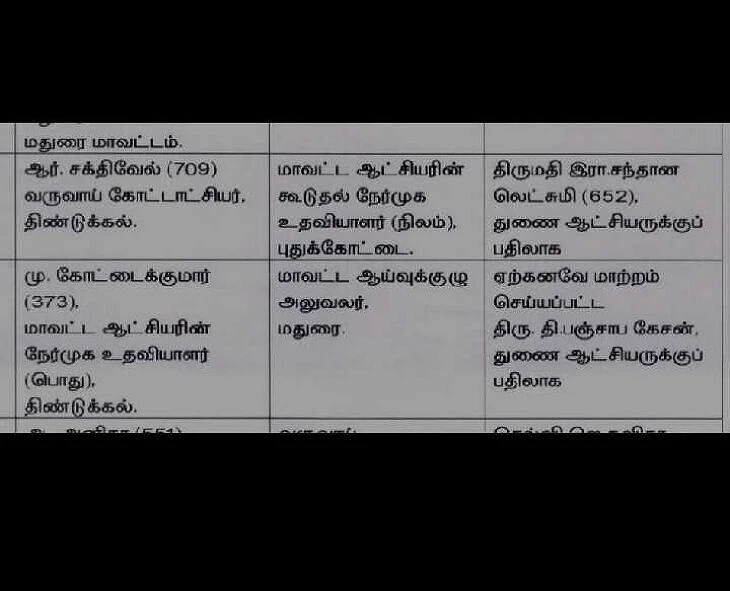 மதுரை மாவட்டம்.
ஆர். சக்திவேல் (709)
வருவாய் கோட்டாட்சியர்,
திண்டுக்கல்.
மாவட்ட ஆட்சியரின்
கூடுதல் நேர்முக
உதவியாளர் (நிலம்),
புதுக்கோட்டை.
திருமதி இரா.சந்தான
லெட்சுமி (652),
துணை ஆட்சியருக்குப்
பதிலாக
மு. கோட்டைக்குமார்
(373),
மாவட்ட ஆட்சியரின்
நேர்முக உதவியாளர்
(பொது),
திண்டுக்கல்.
மாவட்ட ஆய்வுக்குழு
அலுவலர்,
மதுரை.
ஏற்கனவே மாற்றம்
செய்யப்பட்ட
திரு. தி.பஞ்சாப கேசன்,
துணை ஆட்சியருக்குப்
பதிலாக